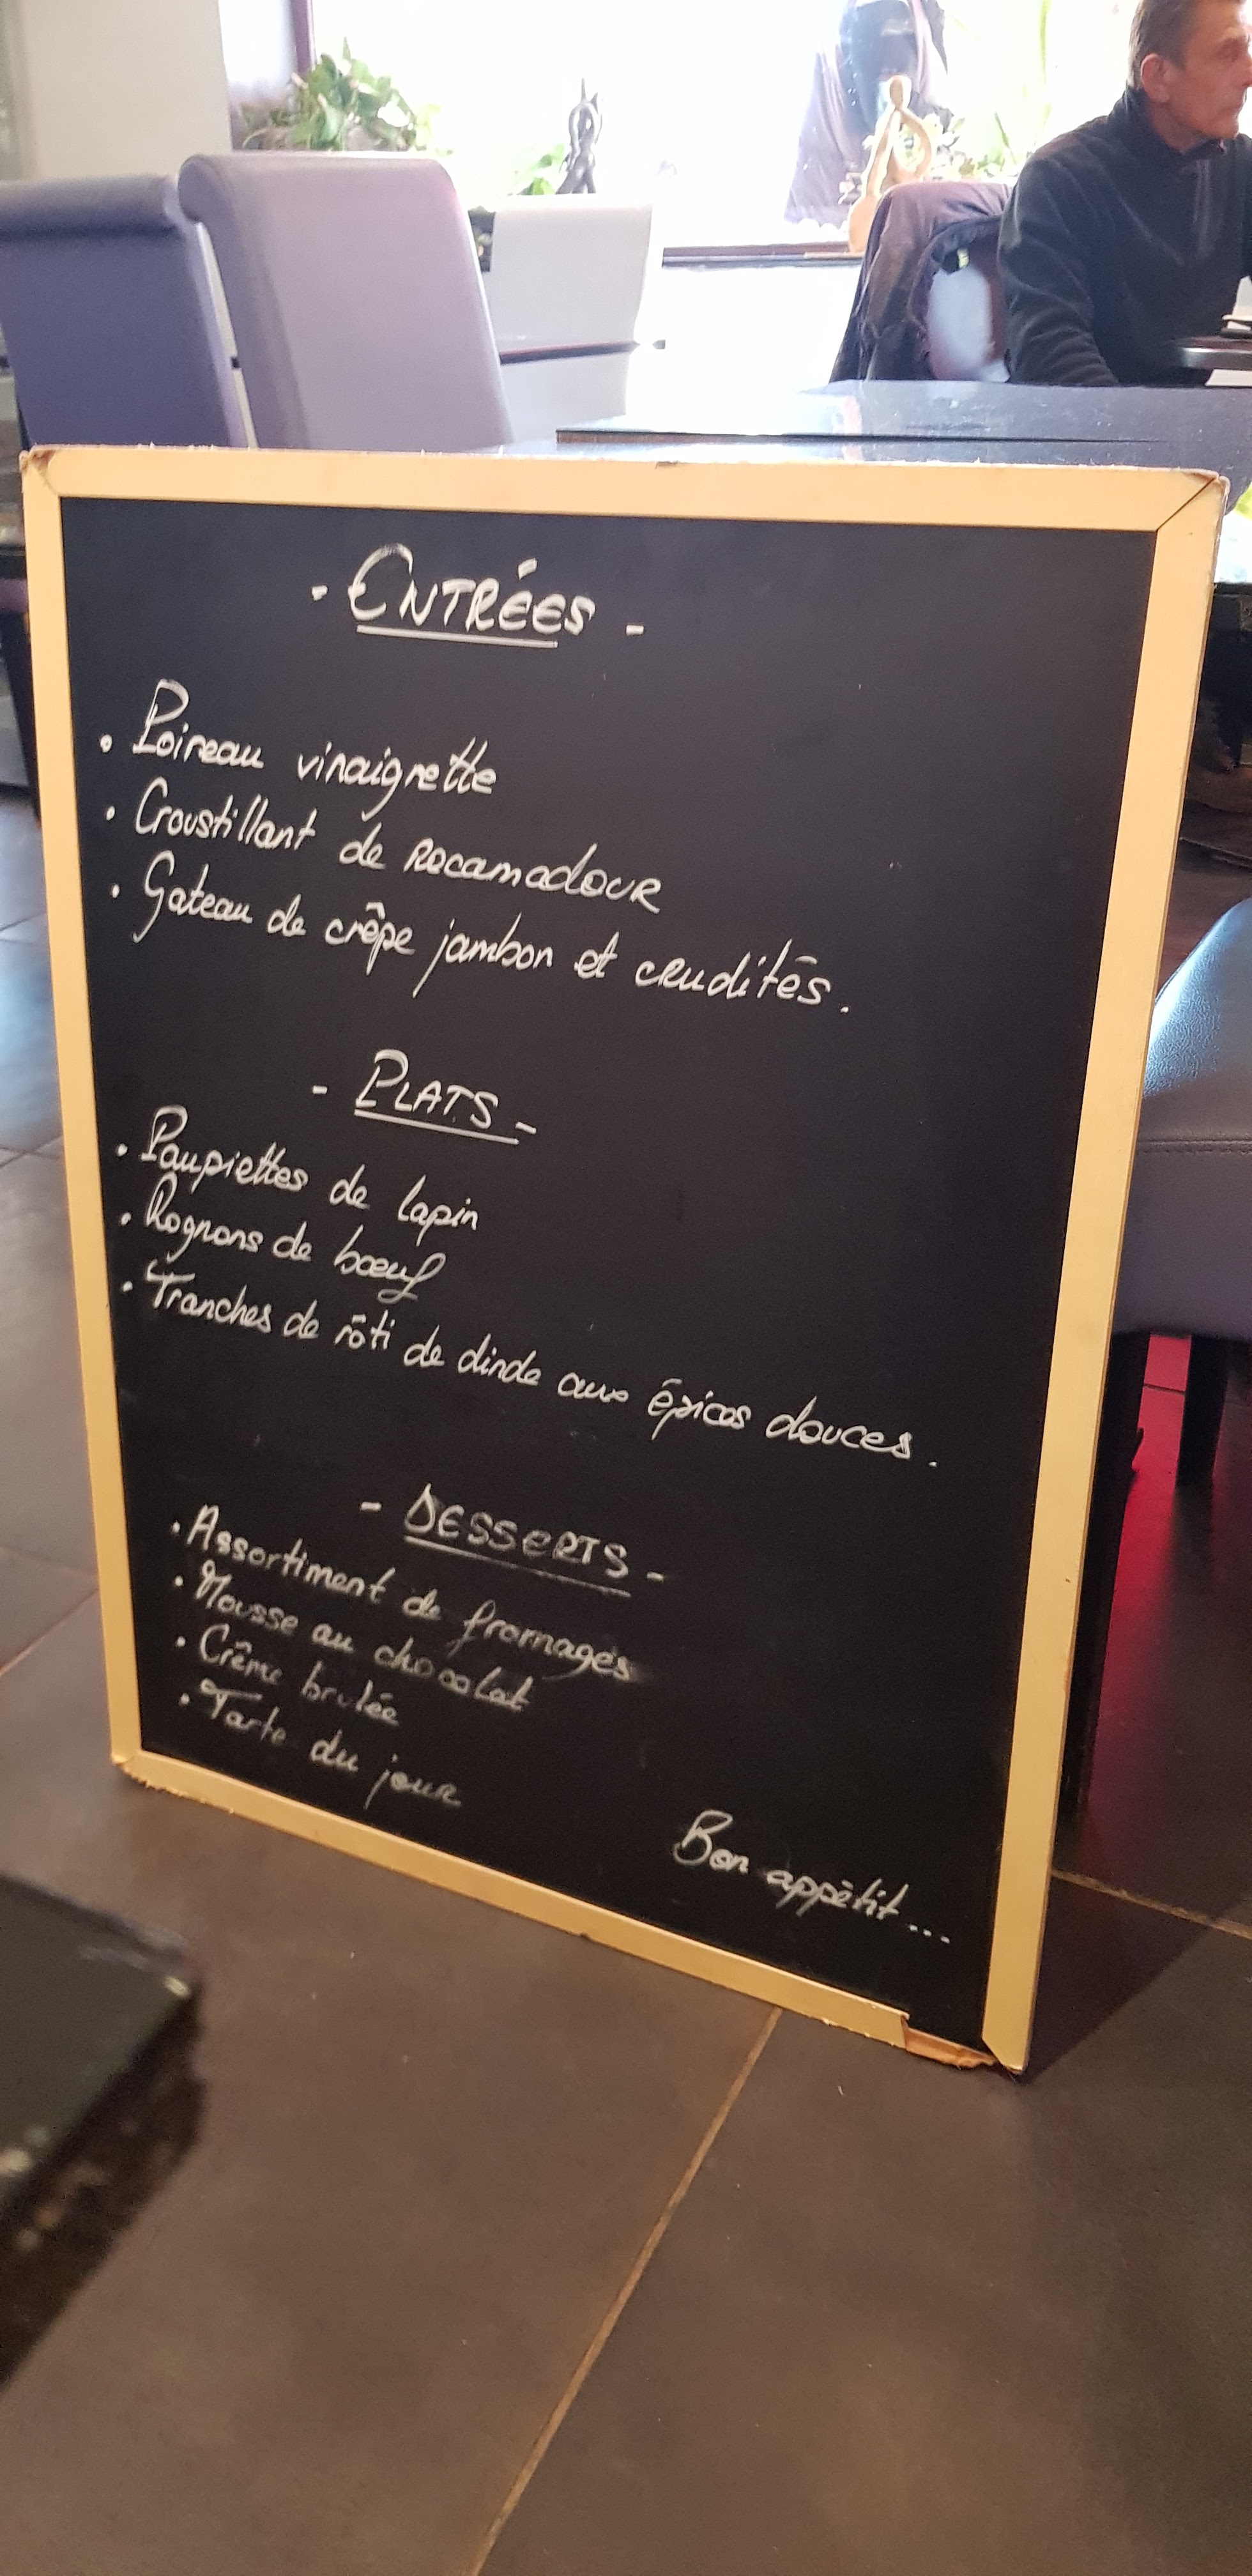 - ENTRÉES -
. Poireau vinaigrette
. Croustillant de Rocamadour
. Gateau de crêpe jambon et crudités.
- PLATS -
. Paupiettes de lapin
. Rognons de bœuf
. Tranches de rôti de dinde aux épices douces.
- DESSERTS -
. Assortiment de fromages
. Mousse au chocolat
. Crême brulée
. Tarte du jour
Bon appétit...